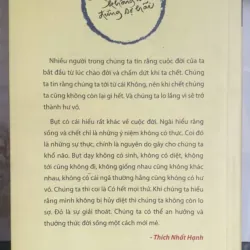 không có
không sợ hãi
Nhiều người trong chúng ta tin rằng cuộc đời của ta
bắt đầu từ lúc chào đời và chấm dứt khi ta chết. Chúng
ta tin rằng chúng ta tới từ cái Không, nên khi chết chúng
ta cũng không còn lại gì hết. Và chúng ta lo lắng vì sẽ trở
thành hư vô.
Bụt có cái hiểu rất khác về cuộc đời. Ngài hiểu rằng
sống và chết chỉ là những ý niệm không có thực. Coi đó
là những sự thực, chính là nguyên do gây cho chúng ta
khổ não. Bụt dạy không có sinh, không có diệt, không
tới cũng không đi, không giống nhau cũng không khác
nhau, không có cái ngã thường hằng cũng không có hư
vô. Chúng ta thì coi là Có hết mọi thứ. Khi chúng ta hiểu
rằng mình không bị hủy diệt thì chúng ta không còn lo
sợ. Đó là sự giải thoát. Chúng ta có thể an hưởng và
thưởng thức đời sống một cách mới mẻ.
- Thích Nhất Hạnh